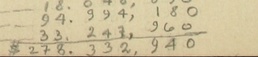 94. 994, 180
33. 247, 960
$ 278. 332, 940